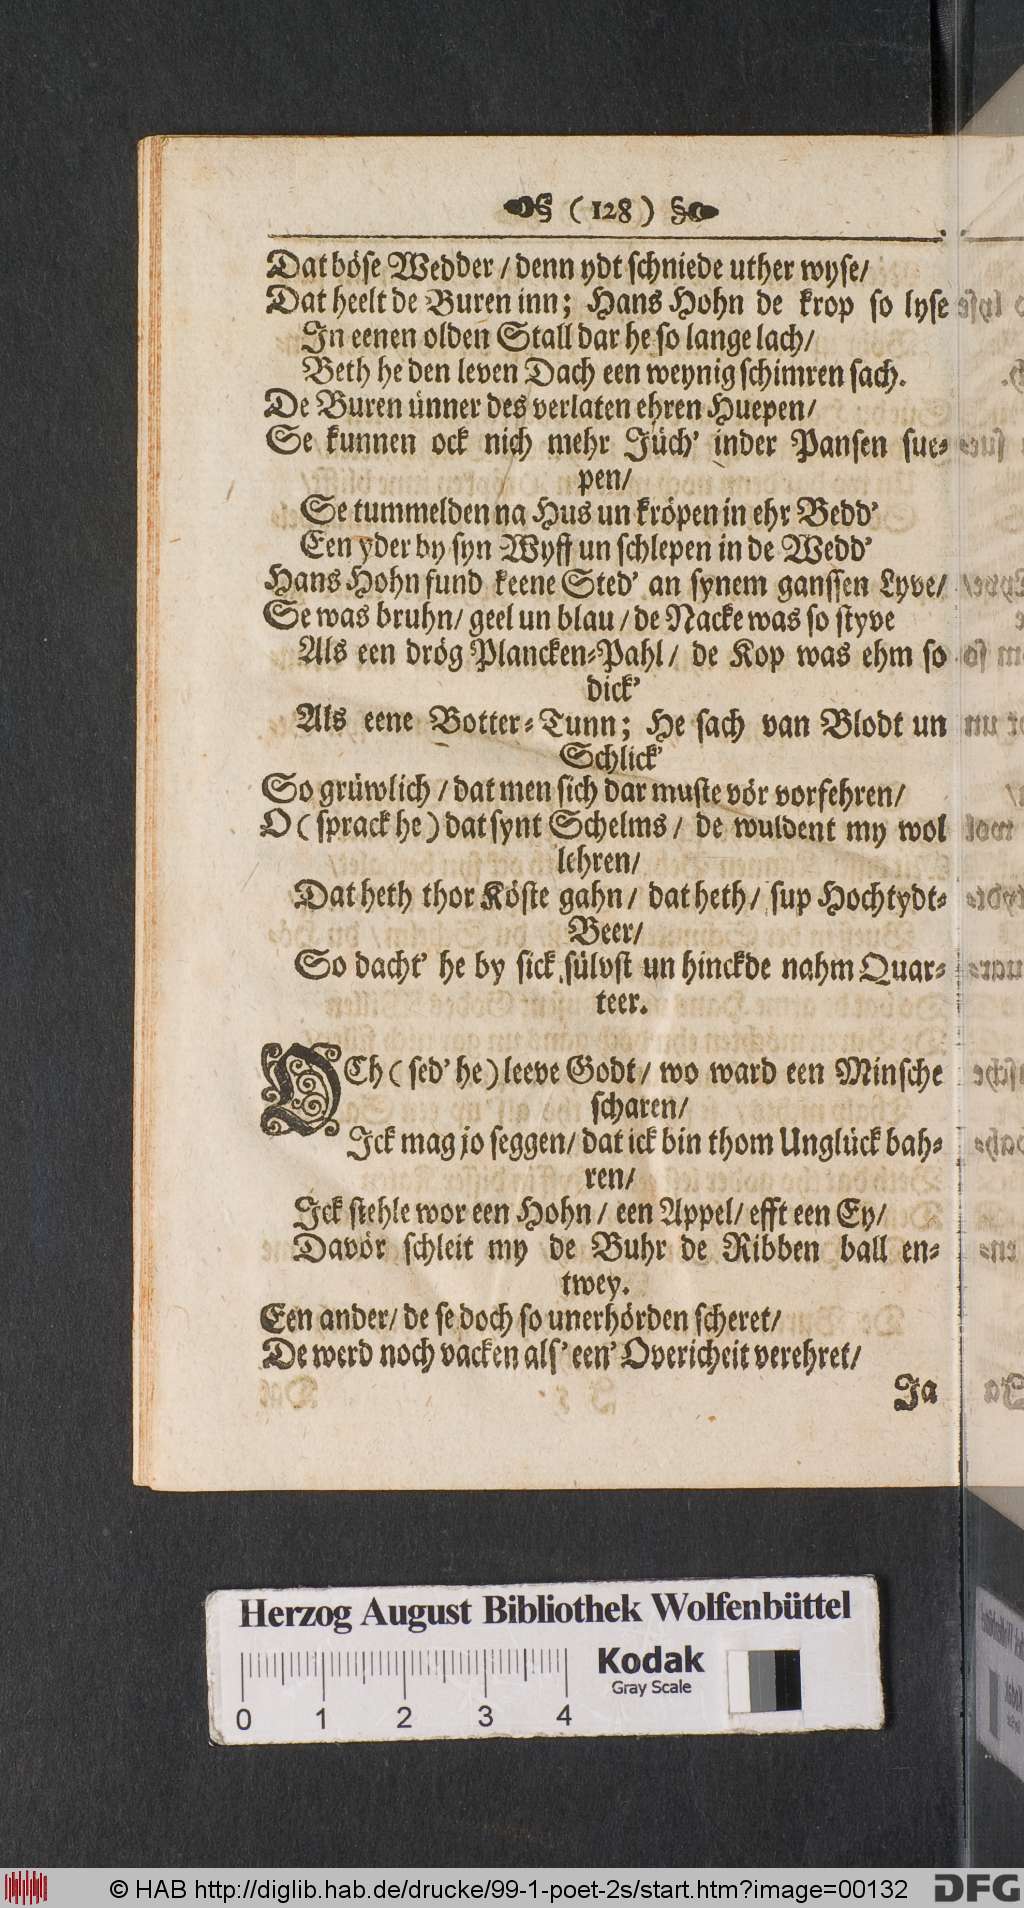 ( 128 )
Dat böse Wedder / denn ydt schniede uther wyse/
Dat heelt de Buren inn; Hans Hohn de krop so lyse
In eenen olden Stall dar he so lange lach/
Beth he den leven Dach een weynig schimren sach.
De Buren ünner des verlaten ehren Huepen/
Se kunnen ock nich mehr Jüch' inder Pansen sue-
pen/
Se tummelden na Hus un kröpen in ehr Bedd'
Een yder by syn Wyff un schlepen in de Wedd'
Hans Hohn fund keene Sted' an synem ganssen Lyve/
Se was bruhn/ geel un blau / de Nacke was so styve
Als een drög Plancken-Pahl / de Kop was ehm so
dick'
Als eene Botter-Tunn; He sach van Blodt un
Schlick'
So grüwlich / dat men sich dar muste vör vorfehren/
O ( sprack he ) dat synt Schelms / de wuldent my wol
lehren/
Dat heth thor Köste gahn / dat heth / sup Hochtydt-
Beer/
So dacht' he by sick sülvst un hinckde nahm Quar-
teer.
OCh ( sed' he ) leeve Godt / wo ward een Minsche
scharen/
Ick mag jo seggen/ dat ick bin thom Unglück bah-
ren/
Ick stehle wor een Hohn / een Appel/ efft een Ey/
Davör schleit my de Buhr de Ribben ball en-
twey.
Een ander/ de se doch so unerhörden scheret/
De werd noch vacken als' een' Overicheit verehret/
Ja
Herzog August Bibliothek Wolfenbüttel
Kodak
Gray Scale
0 1 2 3 4
© HAB http://diglib.hab.de/drucke/99-1-poet-2s/start.htm?image=00132
DFG